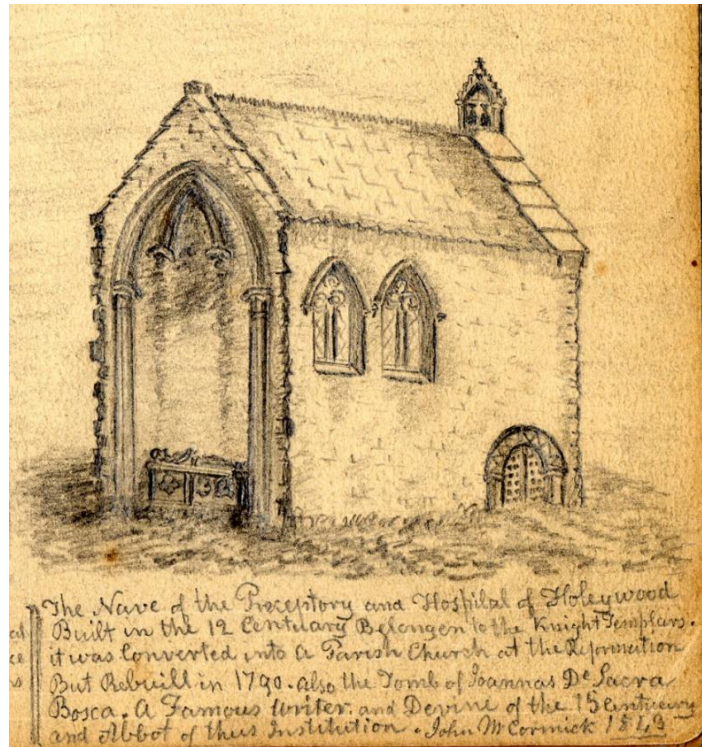 The Nave of the Preceptory and Hospital of Holeywood
Built in the 12 Centuary Belongen to the Knight Templars.
it was Converted into a Parish Church at the Reformation
But Rebuill in 1790. also the Tomb of Joannas De Sacra
Bosca. A Famous Writer and Devine of the 15 Centuiery
and Abbot of thus Institution. John McCormick 1843